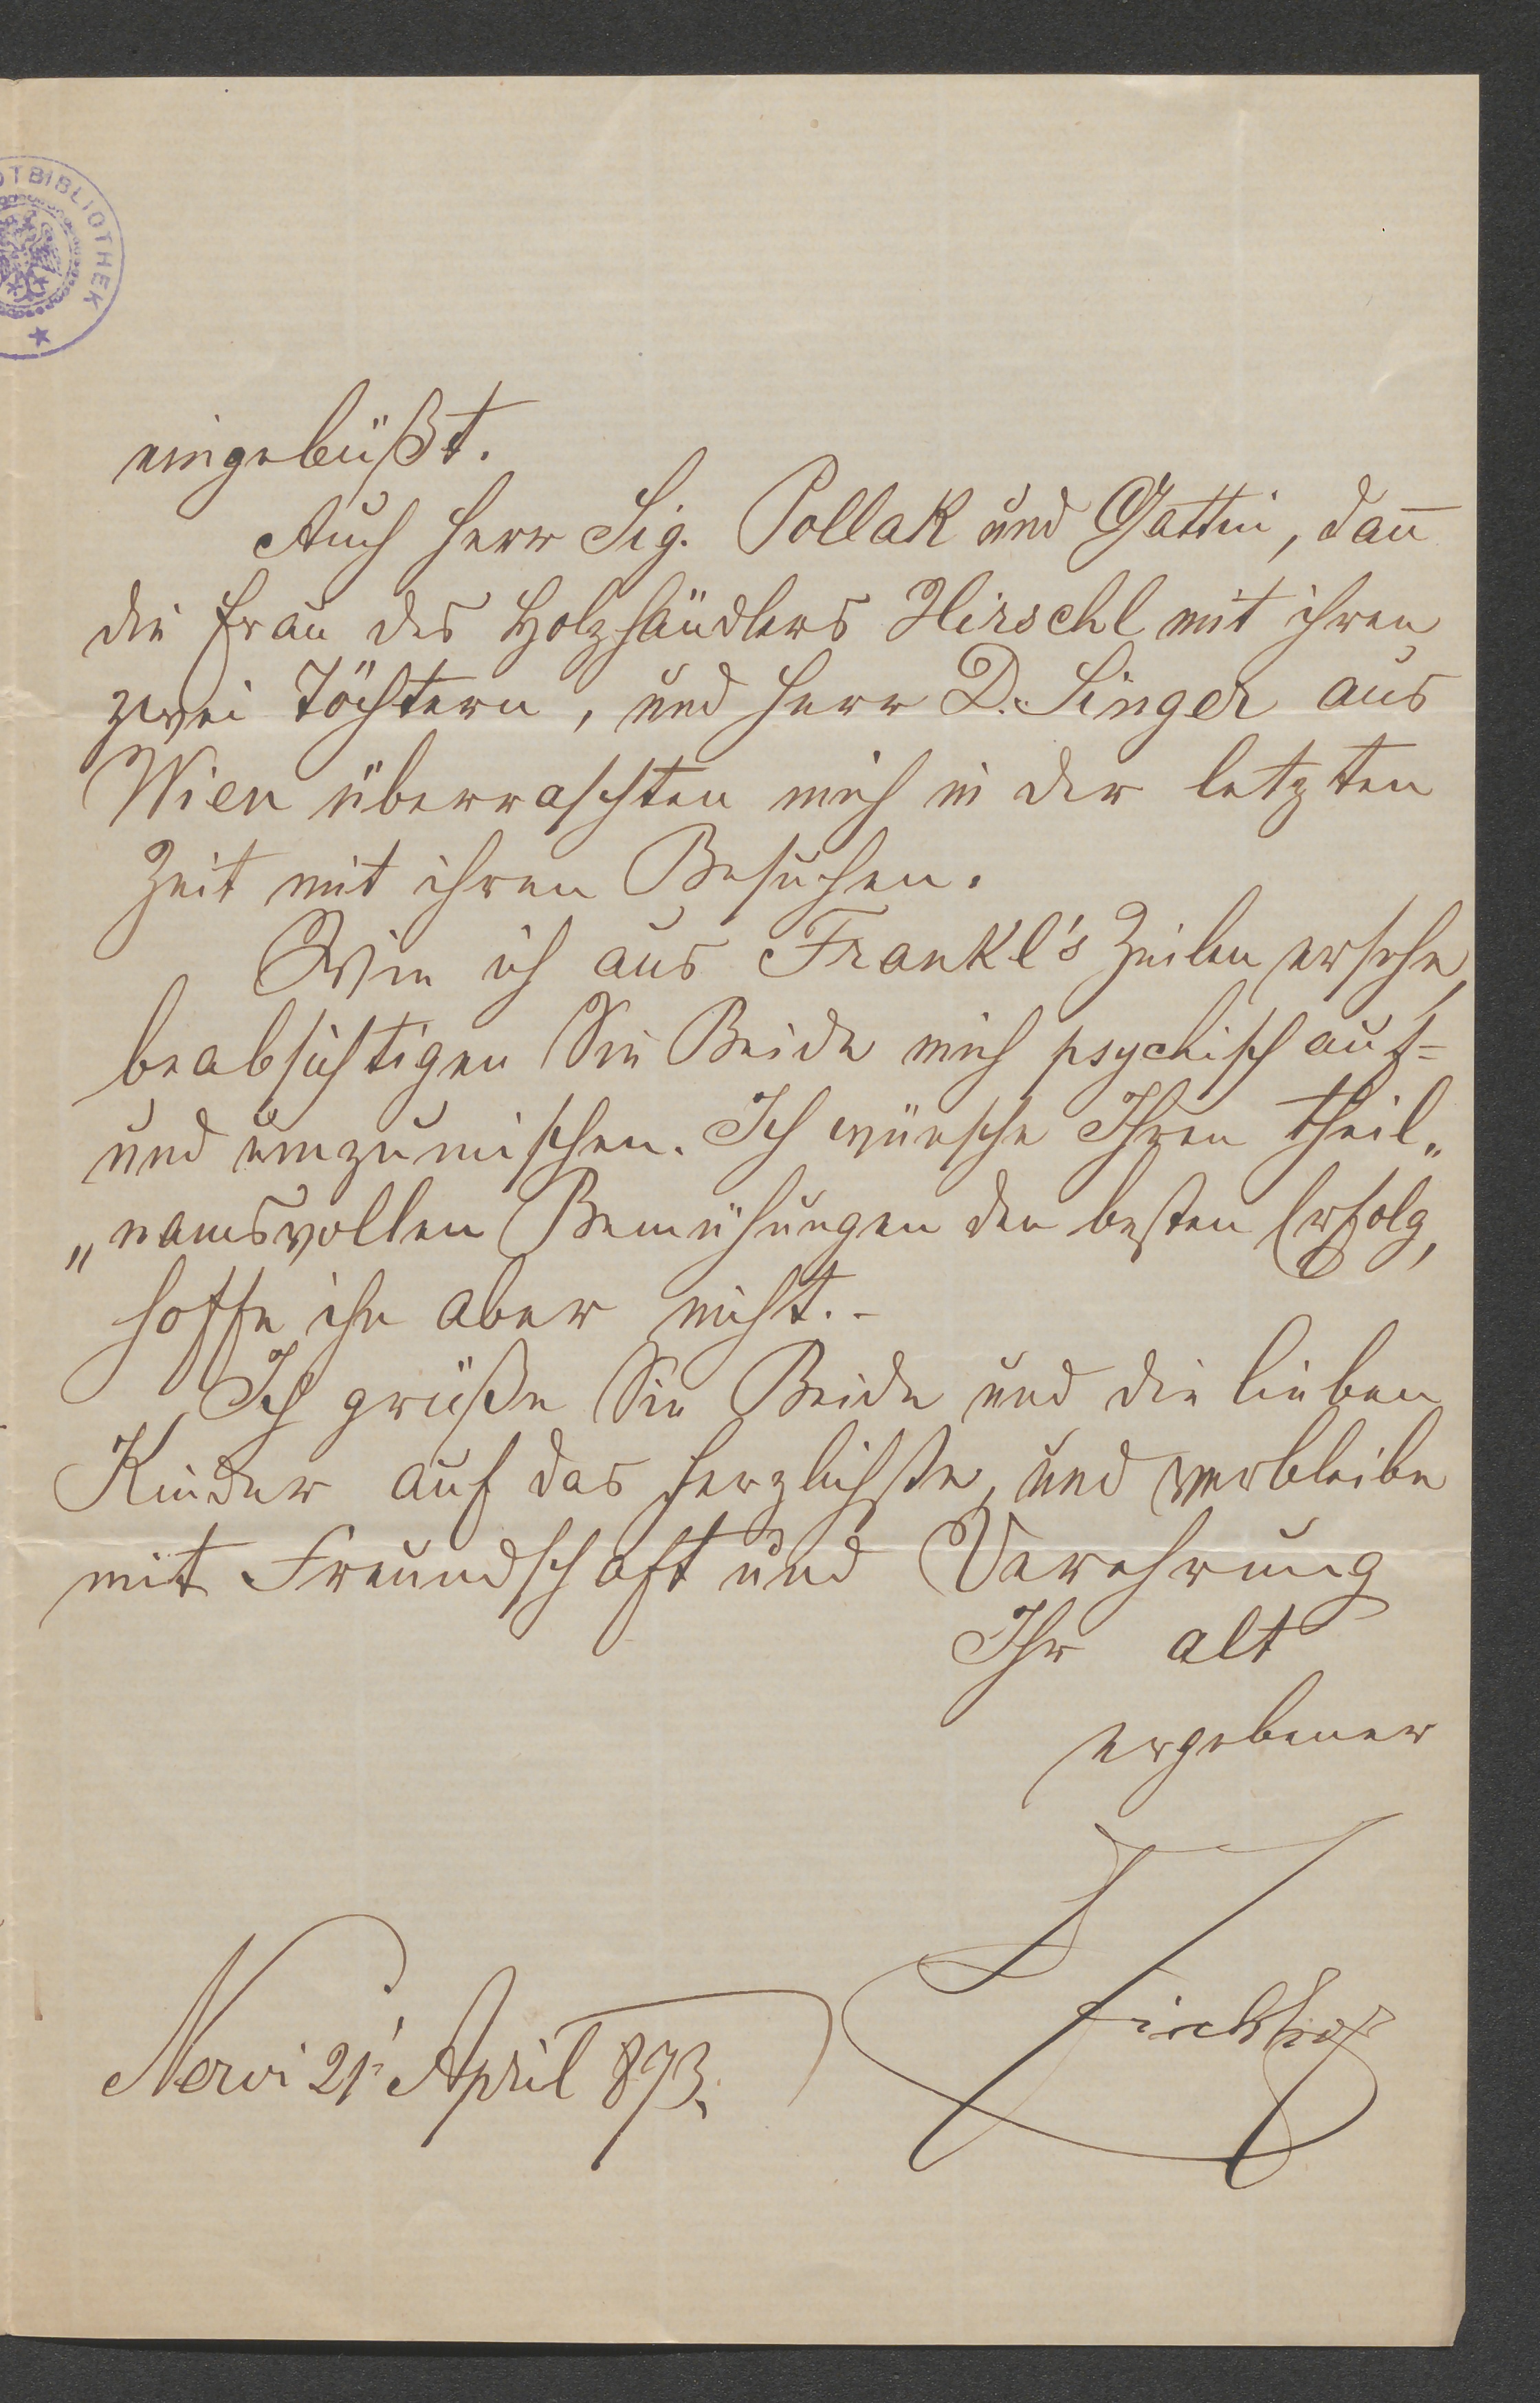 DTBIBLIOTHEK
eingebüßt.
Auch Herr Sig. Pollak und Gattin, dan̅
die Frau des Holzhändlers Hirschl mit ihren
zwei Töchtern, und Herr D. Singer aus
Wien überraschten mich in der letzten
Zeit mit ihren Besuchen.
Wie ich aus Frankl's Zeilen ersehe,
beabsichtigen Sie Beide mich psychisch auf-
und umzumischen. Ich wünsche Ihren theil„
„namsvollen Bemühungen den besten Erfolg,
hoffe ihn aber nicht.-
Ich grüße Sie Beide und die lieben
Kinder auf das herzlichste, und verbleibe
mit Freundschaft und Verehrung
Ihr alt
ergebener
Fischhof
Nervi 21' April 873.